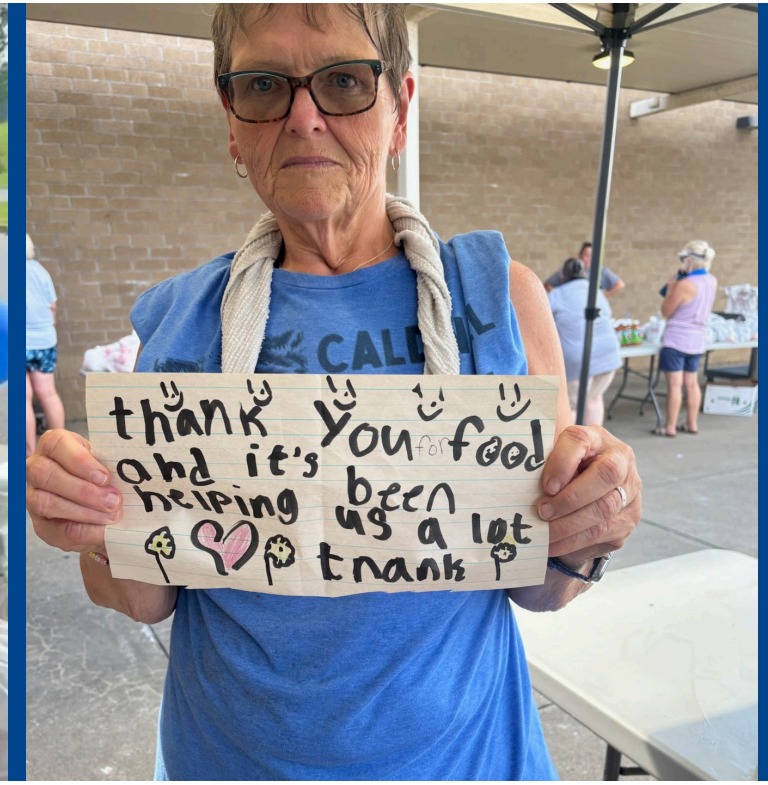 CALD
thank you for food
and it's been
helping us a lot
thank